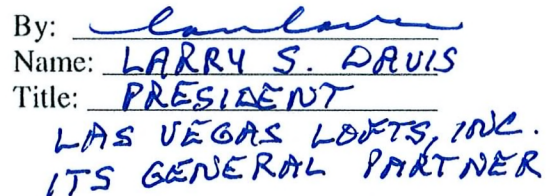 By:
Name: LARRY S. DAVIS
Title: PRESIDENT
LAS VEGAS LOFTS, INC.
ITS GENERAL PARTNER